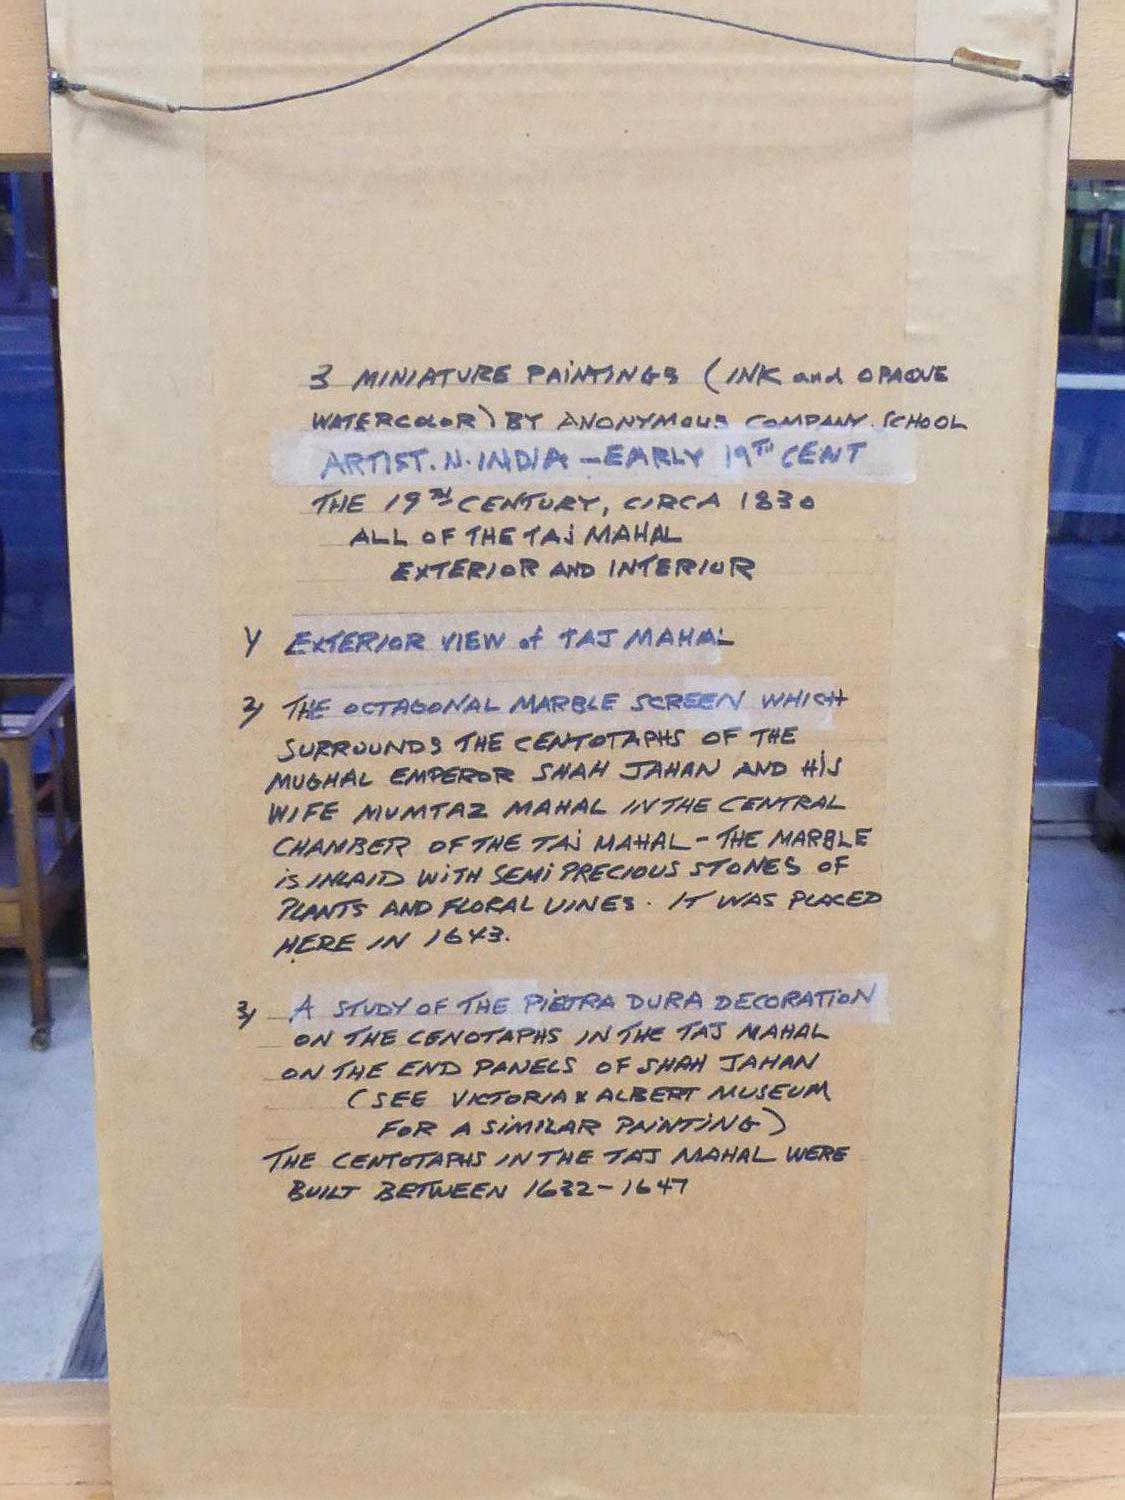 3 MINIATURE PAINTINGS (INK and OPAQUE
WATERCOLOR) BY ANONYMOUS COMPANY SCHOOL
ARTIST. N. INDIA – EARLY 19TH CENT
THE 19TH CENTURY, CIRCA 1830
ALL OF THE TAJ MAHAL
EXTERIOR AND INTERIOR
1) EXTERIOR VIEW of TAJ MAHAL
2) THE OCTAGONAL MARBLE SCREEN WHICH
SURROUNDS THE CENTOTAPHS OF THE
MUGHAL EMPEROR SHAH JAHAN AND HIS
WIFE MUMTAZ MAHAL IN THE CENTRAL
CHAMBER OF THE TAJ MAHAL – THE MARBLE
IS INLAID WITH SEMI PRECIOUS STONES OF
PLANTS AND FLORAL VINES. IT WAS PLACED
HERE IN 1643.
3) A STUDY OF THE PIETRA DURA DECORATION
ON THE CENOTAPHS IN THE TAJ MAHAL
ON THE END PANELS OF SHAH JAHAN
(SEE VICTORIA & ALBERT MUSEUM
FOR A SIMILAR PAINTING)
THE CENTOTAPHS IN THE TAJ MAHAL WERE
BUILT BETWEEN 1632–1647